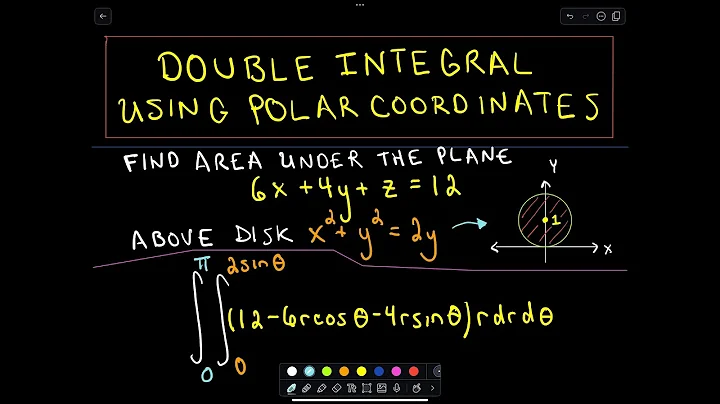 DOUBLE INTEGRAL
USING POLAR COORDINATES
FIND AREA UNDER THE PLANE
6x + 4y + z = 12
ABOVE DISK x² + y² = 2y
Y
1
X
π 2sinθ
∫∫(12-6rcosθ-4rsinθ)rdrdθ
0 0